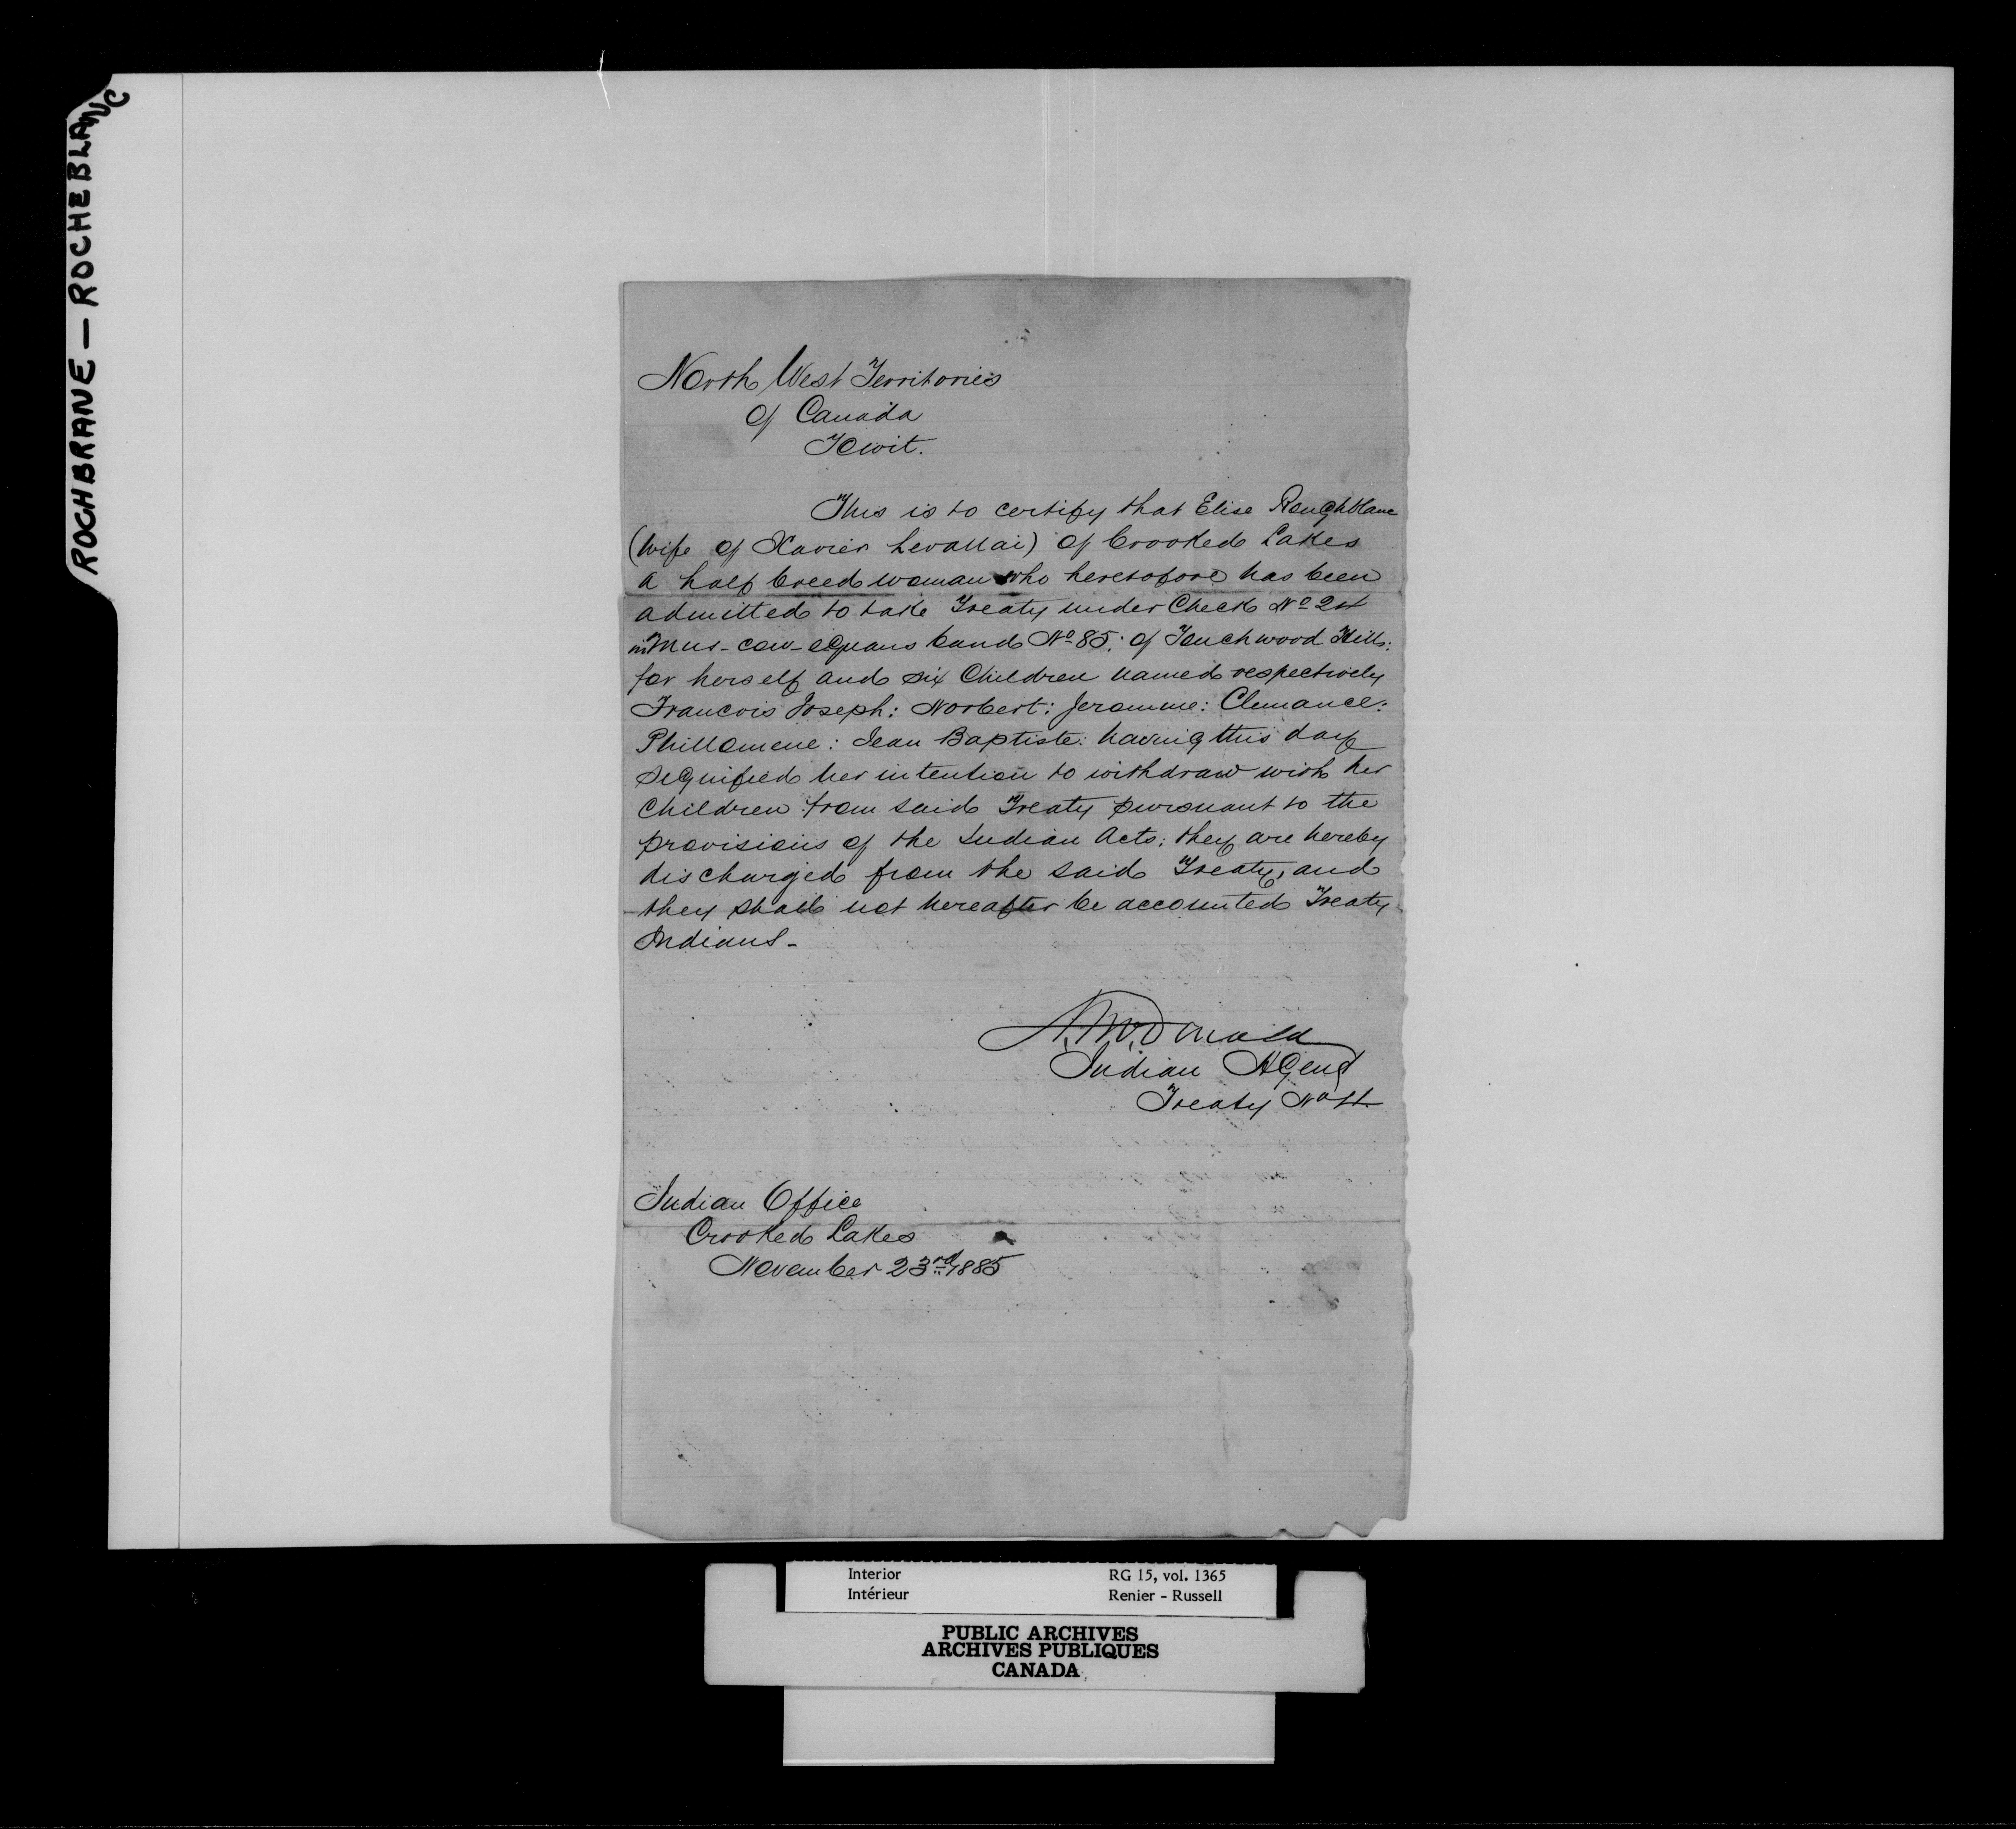 ROCHBRANE — ROCHEBLANC
North West Territories
of Canada
To wit.
This is to certify that Elise Roughblane
(wife of Xavier Levallai) of Crooked Lakes
a half breed woman who heretofore has been
admitted to take Treaty under Check No 24
in Mus-cow-equans band No 85: of Touchwood Hills:
for herself and six Children named respectively
Francois Joseph: Norbert: Jeromme: Clemance:
Phillomene: Jean Baptiste: having this day
signified her intention to withdraw with her
Children from said Treaty pursuant to the
provisions of the Indian Acts: they are hereby
discharged from the said Treaty, and
they shall not hereafter be accounted Treaty
Indians-
A. McDonald
Indian Agent
Treaty No 4.
Indian Office
Crooked Lakes
November 23rd 1885
Interior RG 15, vol. 1365
Intérieur Renier - Russell
PUBLIC ARCHIVES
ARCHIVES PUBLIQUES
CANADA